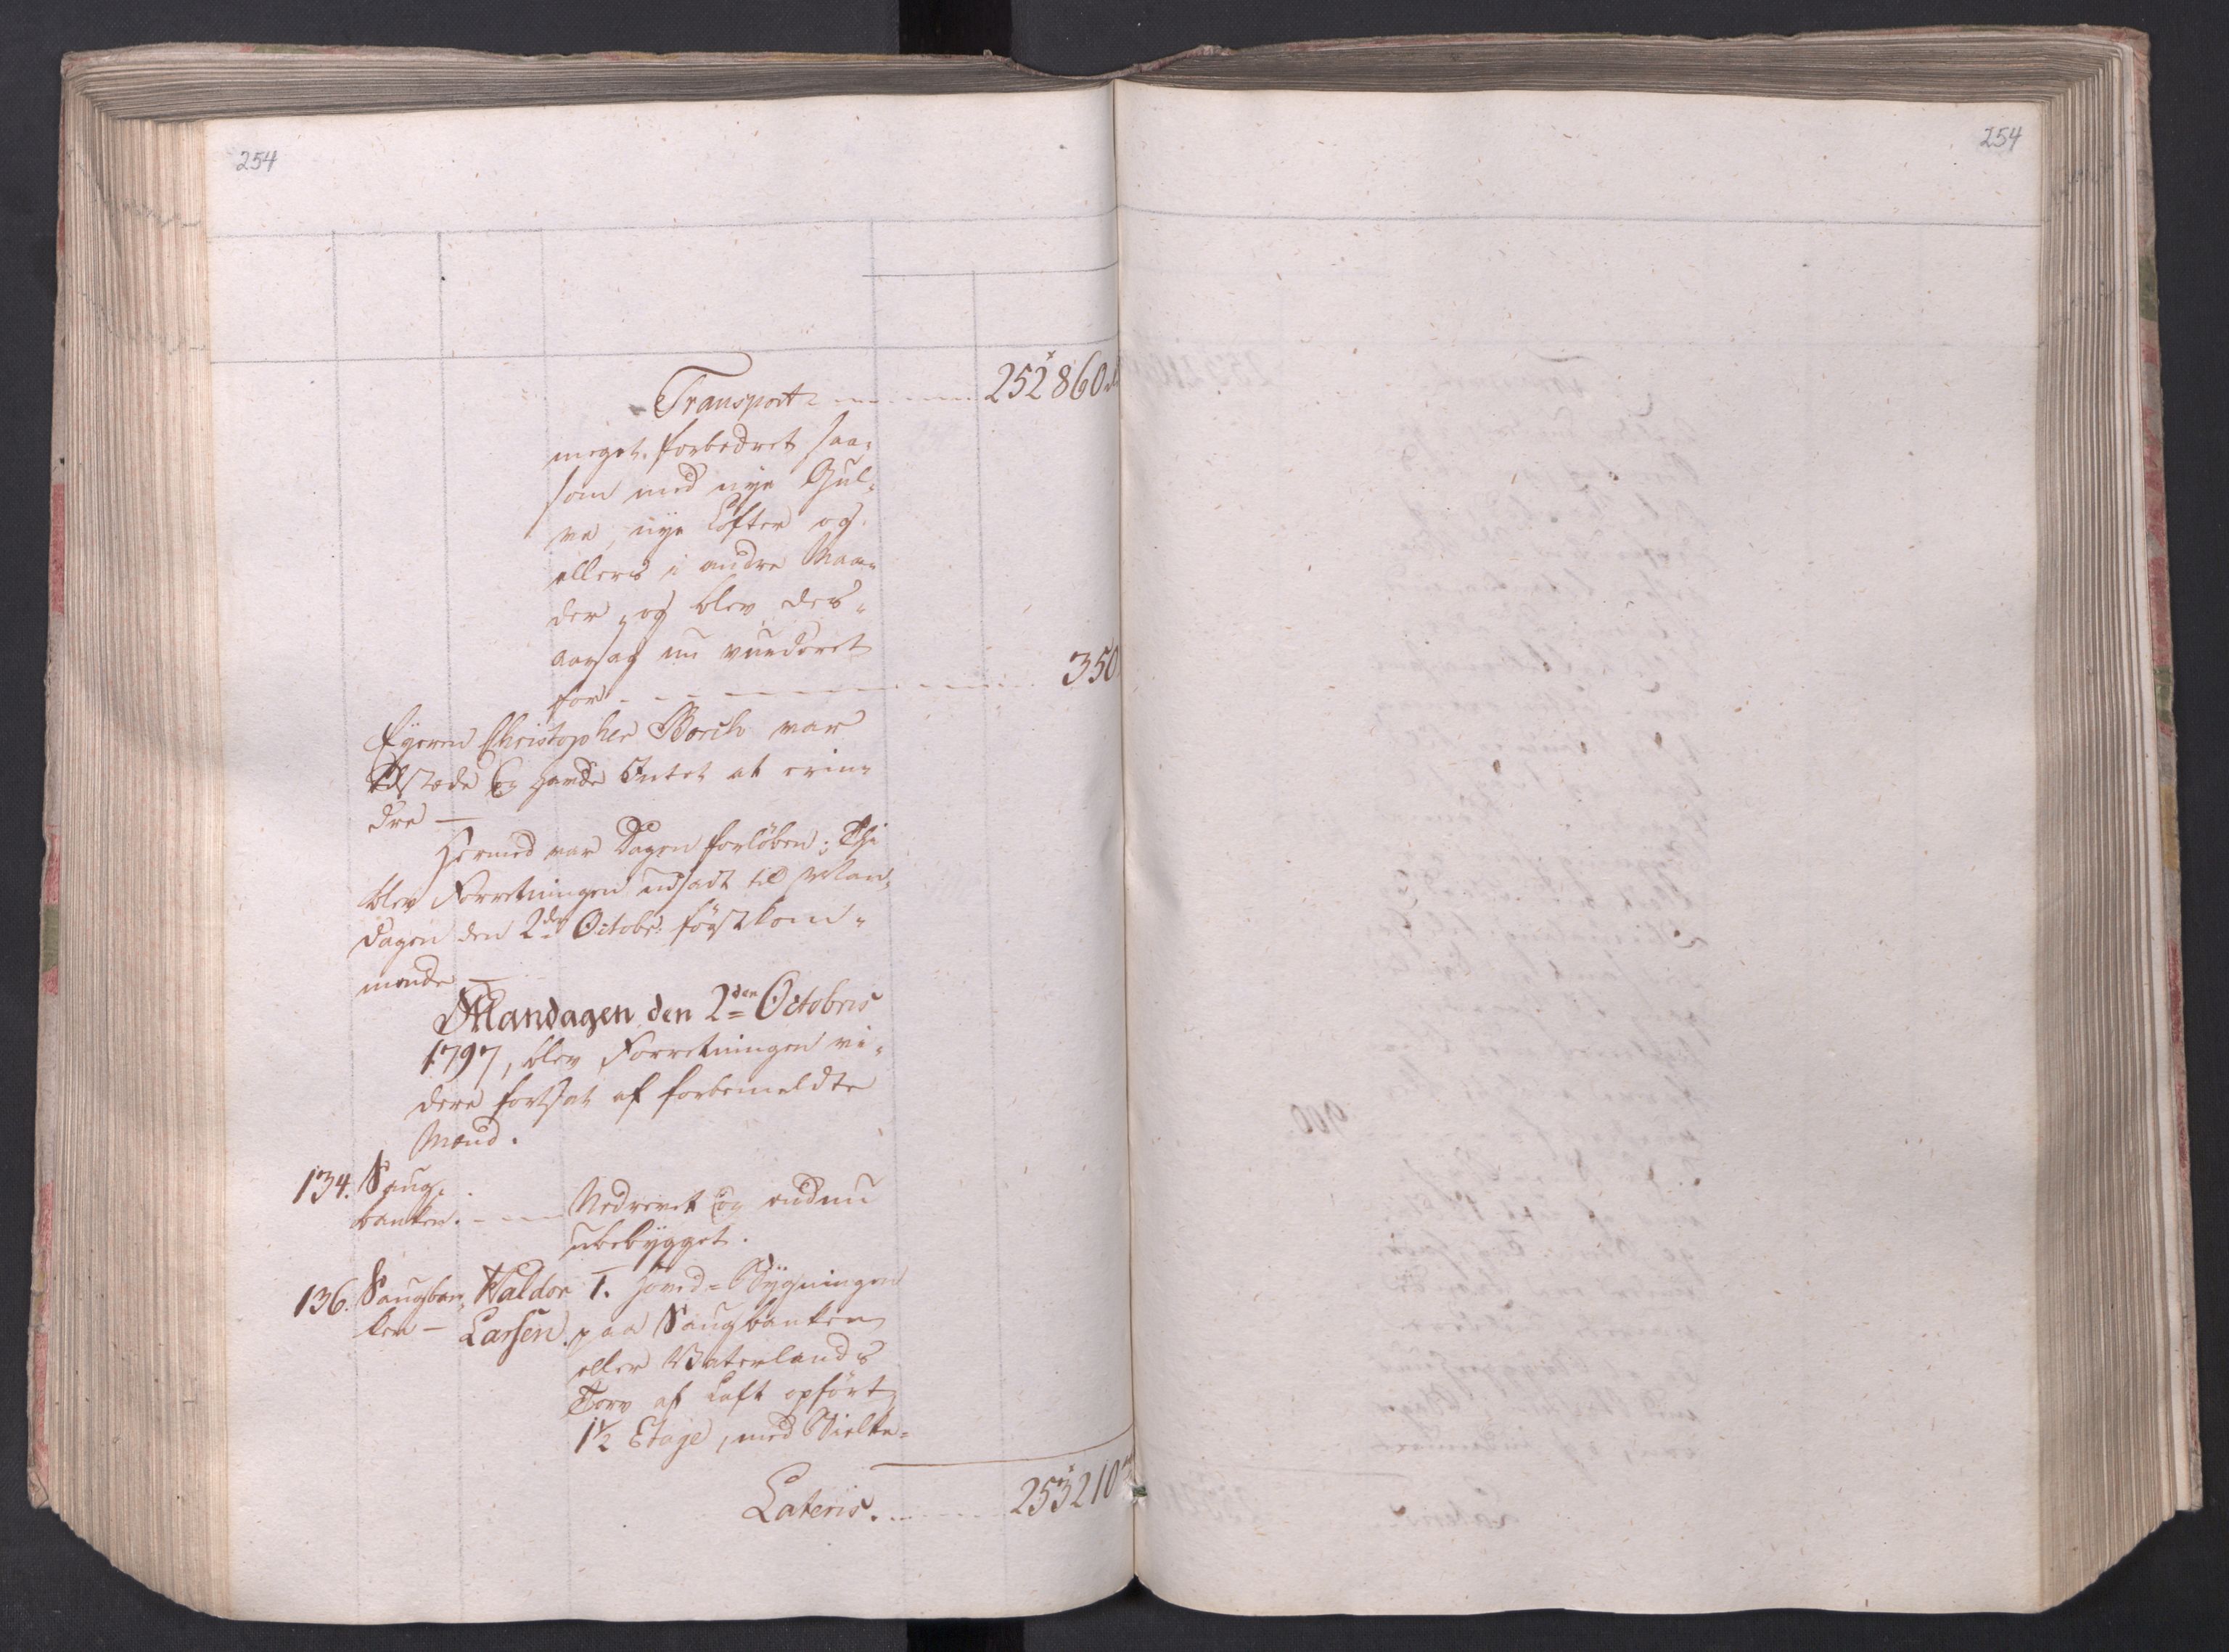 254
Transport 252860
meget forbedret saa-
som med nye Gul-
ve, nye Lofter og
ellers i andre Maa-
der, og blev des-
aarsag nu vurderet
for 350
Ejeren Christopher Borch var
tilstæde og havde Intet at erin-
dre —
Hermed var Dagen forløben; Thi
blev Forretningen udsadt til Man-
dagen den 2den Octobr: først kom-
mende —
Mandagen den 2den Octobris
1797, blev Forretningen vi-
dere fortsat af forbemeldte
Mænd.
134. Saug-
banken. Nedrevet og endnu
ubebygget.
136. Saugban- Haldor 1. Hoved-Bygningen
ken — Larsen. paa Saugbanken
eller Vaterlands
Torv af Laft opført
1½ Etage, med Bielke-
Lateris. 253210
254